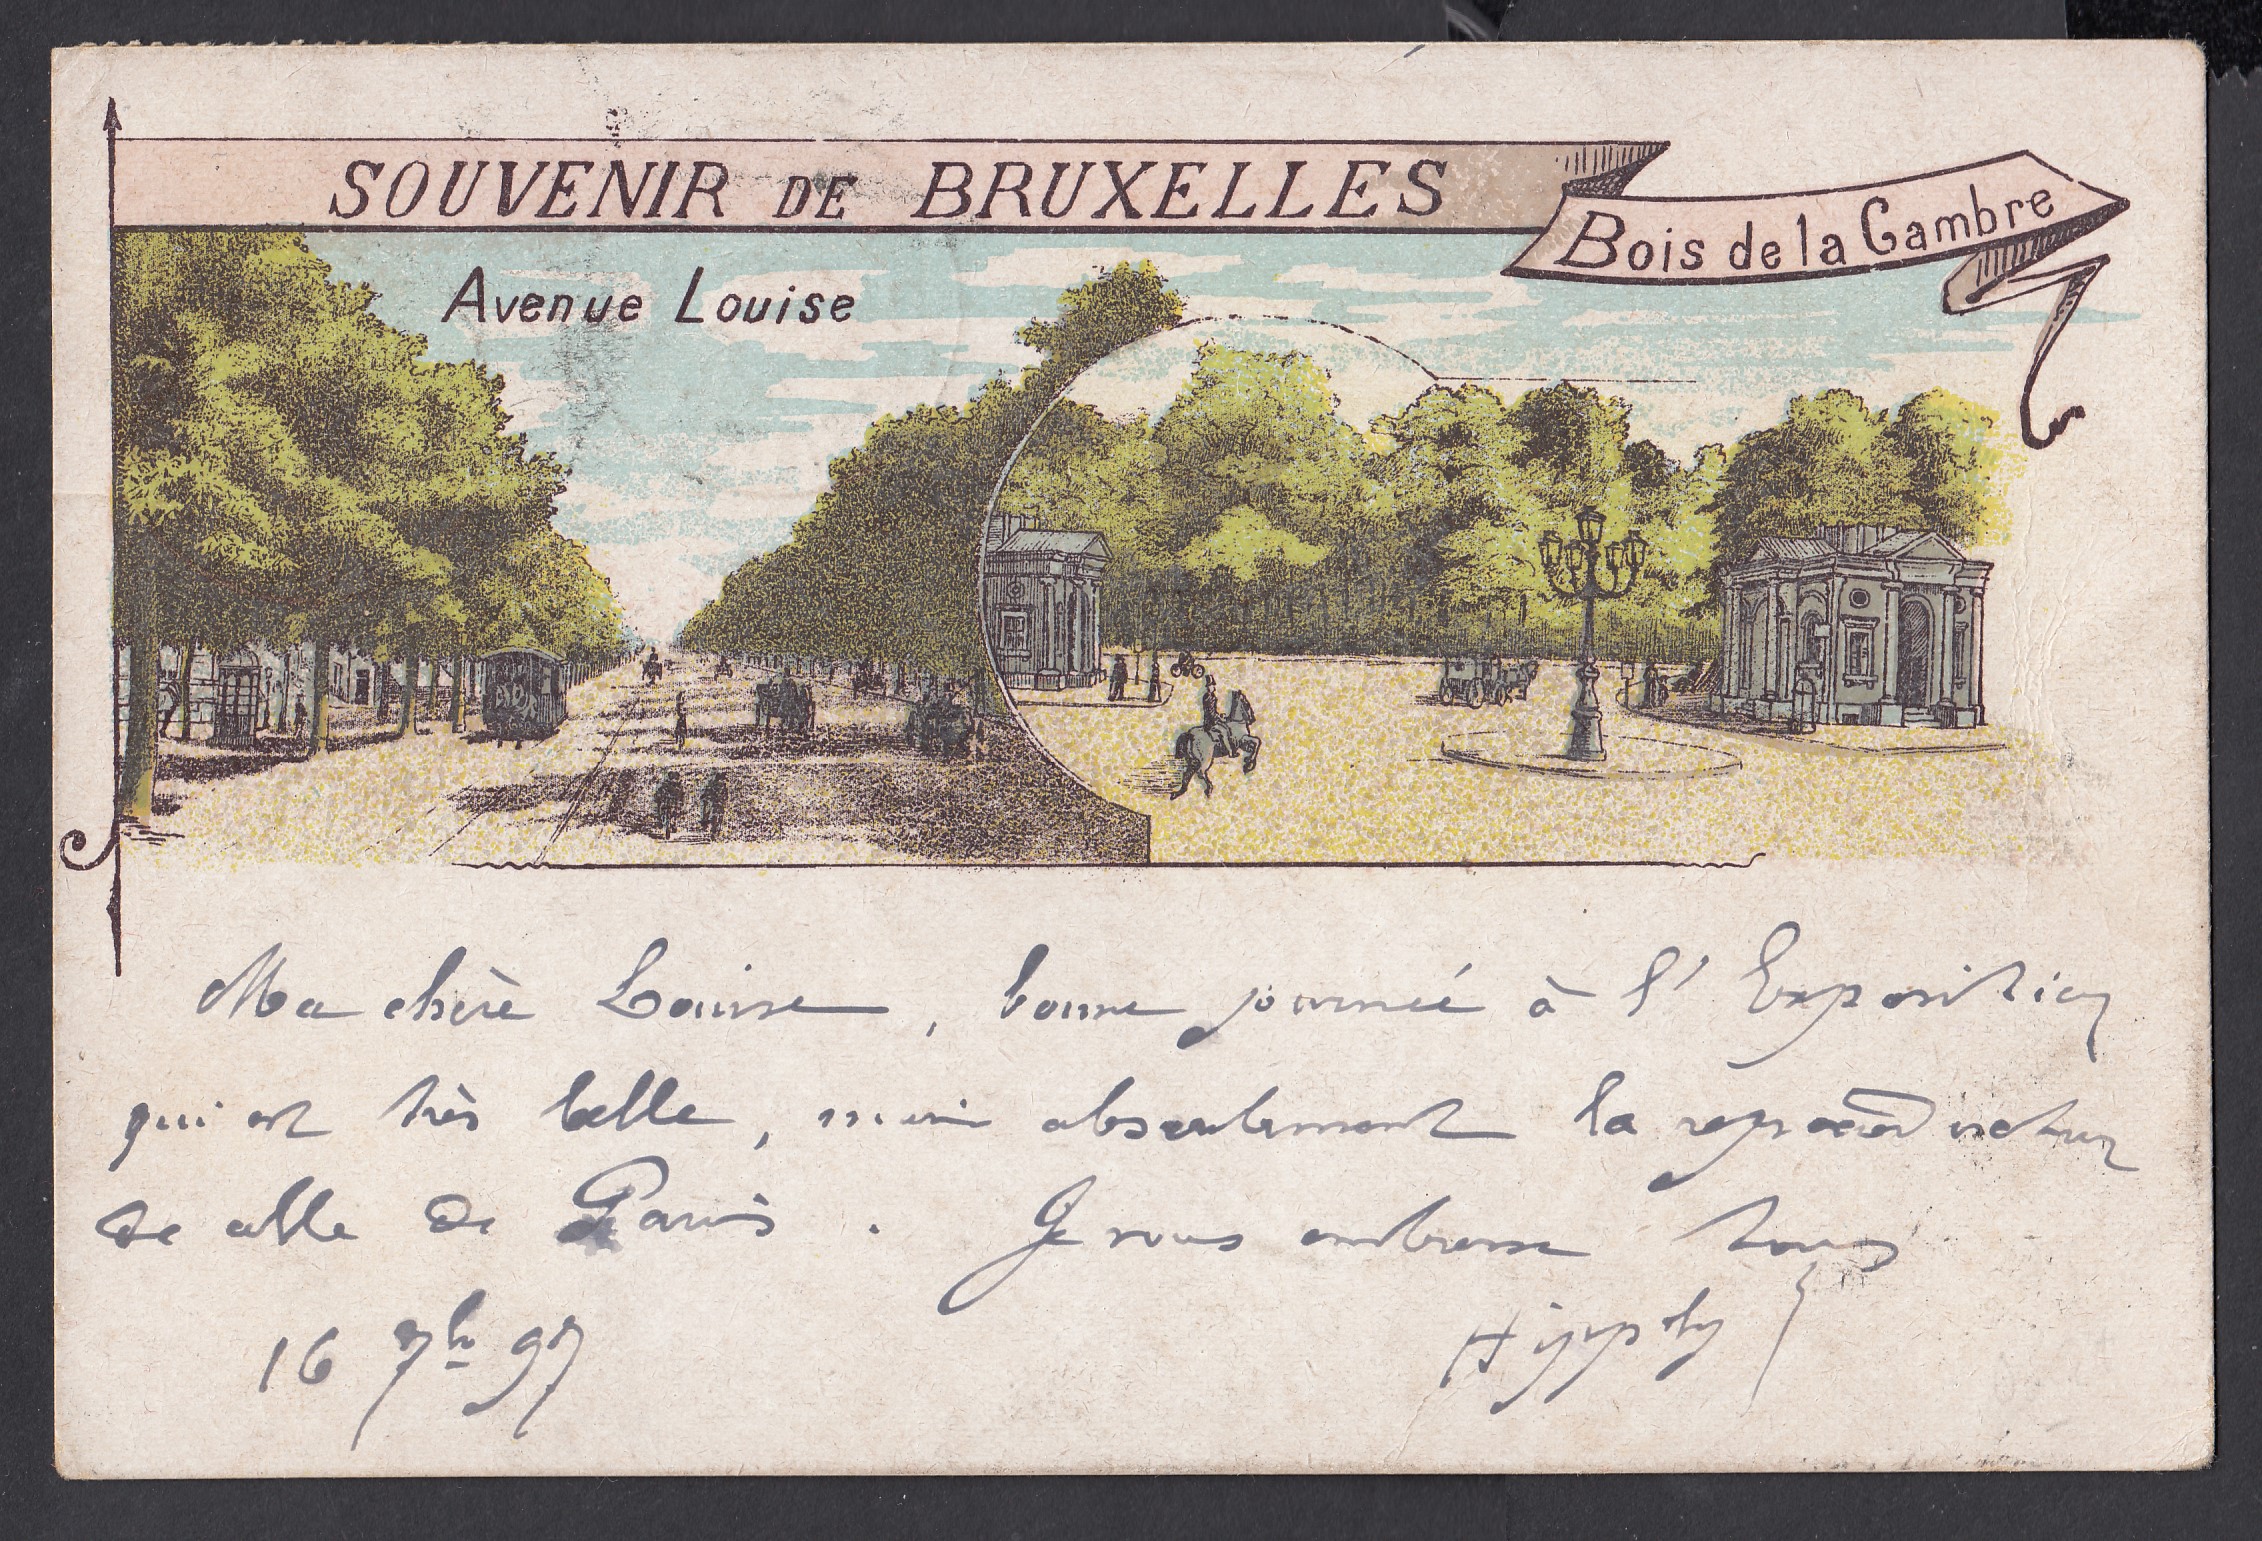 SOUVENIR DE BRUXELLES
Bois de la Cambre
Avenue Louise
Ma chère Louise, bonne journée à l'Exposition
qui est très belle, mais absolument la reproduction
de celle de Paris. Je vous embrasse tous
16 7bre 97